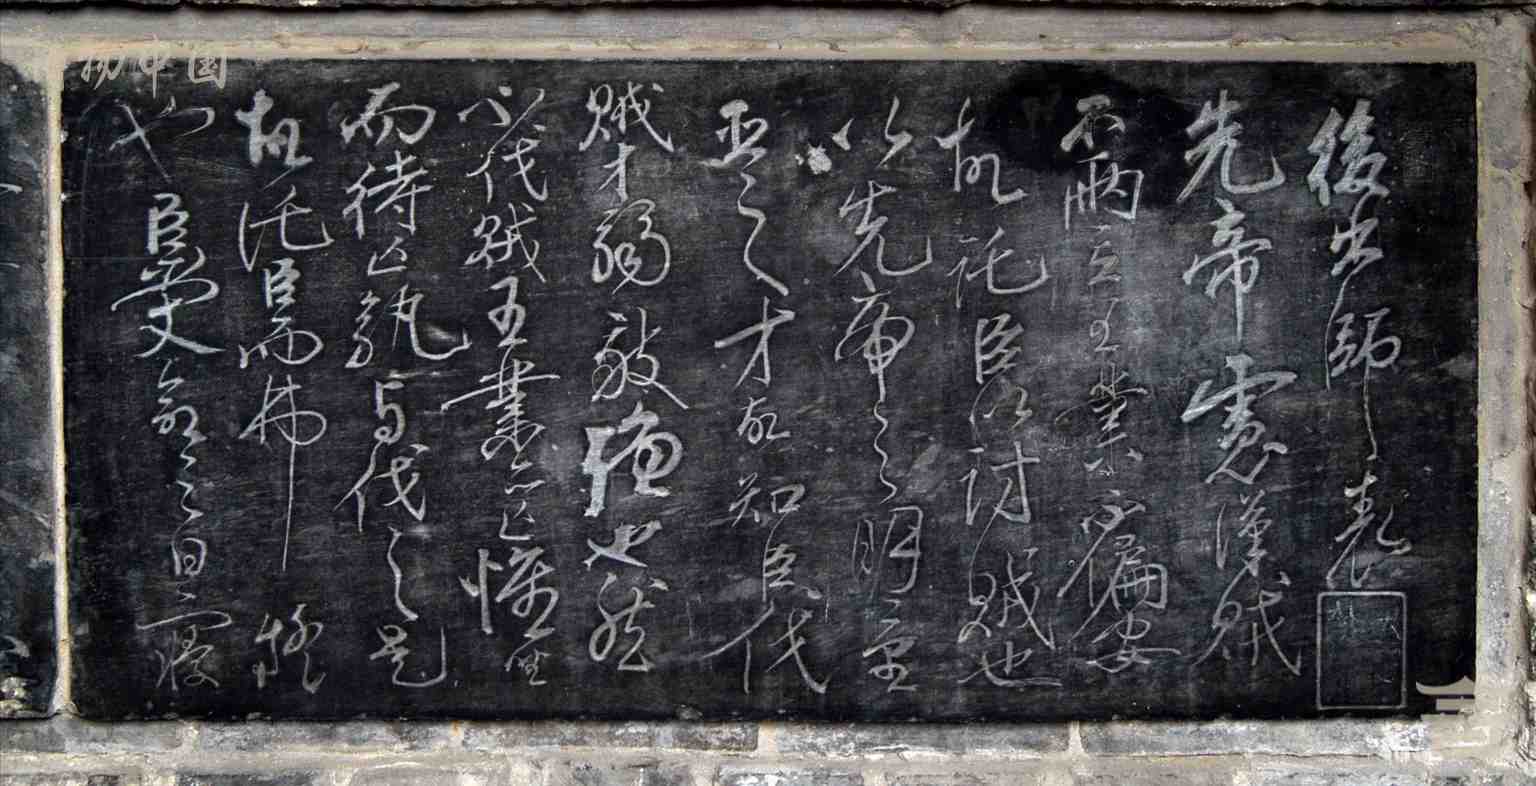 後出師表
先帝慮漢賊
不兩立王業不偏安
故託臣以討賊也
以先帝之明量
臣之才故知臣伐
賊才弱敵強也然
不伐賊王業亦亡惟坐
而待亡孰與伐之是
故託臣而弗疑
也臣受命之日寢
中国